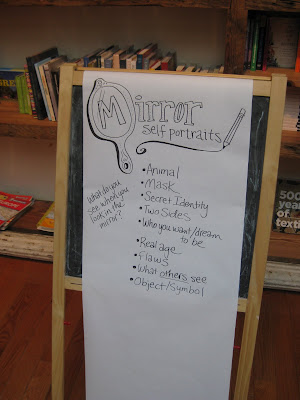 Mirror
self portraits
What do you
see when you
look in the
mirror?
• Animal
• Mask
• Secret Identity
• Two Sides
• Who you want/dream
to be
• Real age
• Flaws
• What others see
• Object/Symbol
500
years of